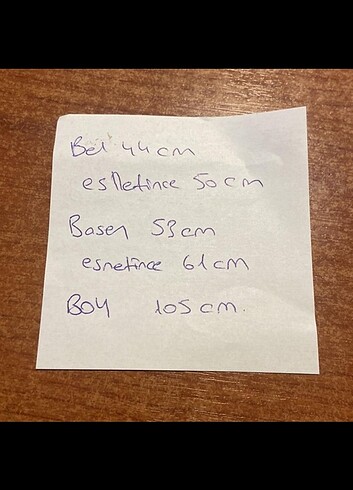 Bel 44cm
esnetince 50cm
Basen 53cm
esnetince 61cm
BOY 105cm.